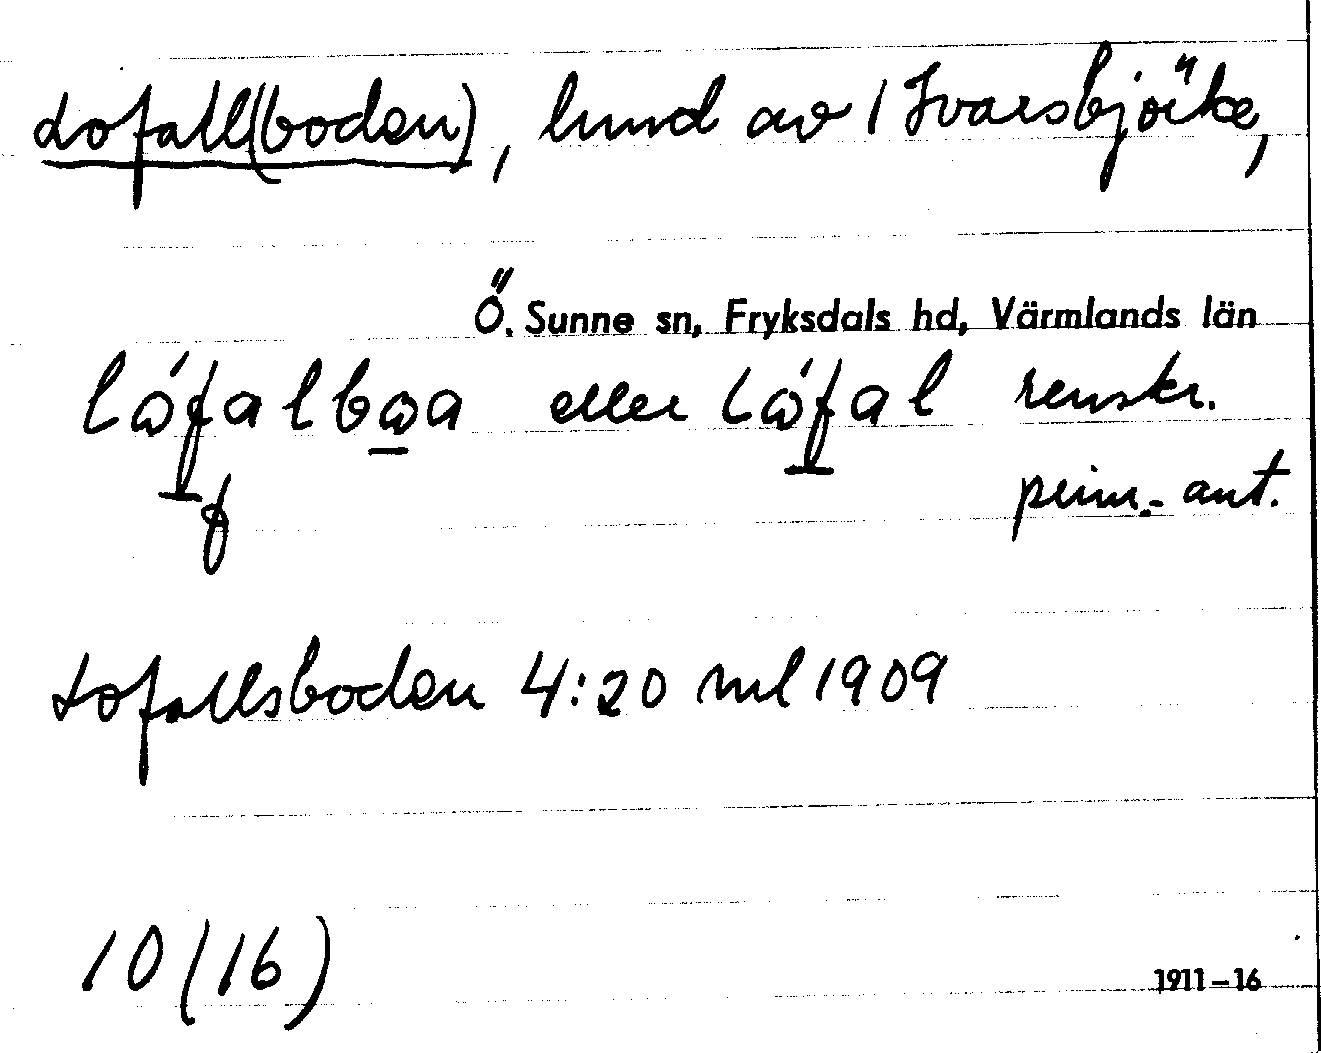 Lofall(boden), lund av 1 Ivarsbjörke,
Ö. Sunne sn, Fryksdals hd, Värmlands län
eller renskr.
prim.-ant.
Lofallsboden 4:20 ml 1909
10 (16)
1911–16